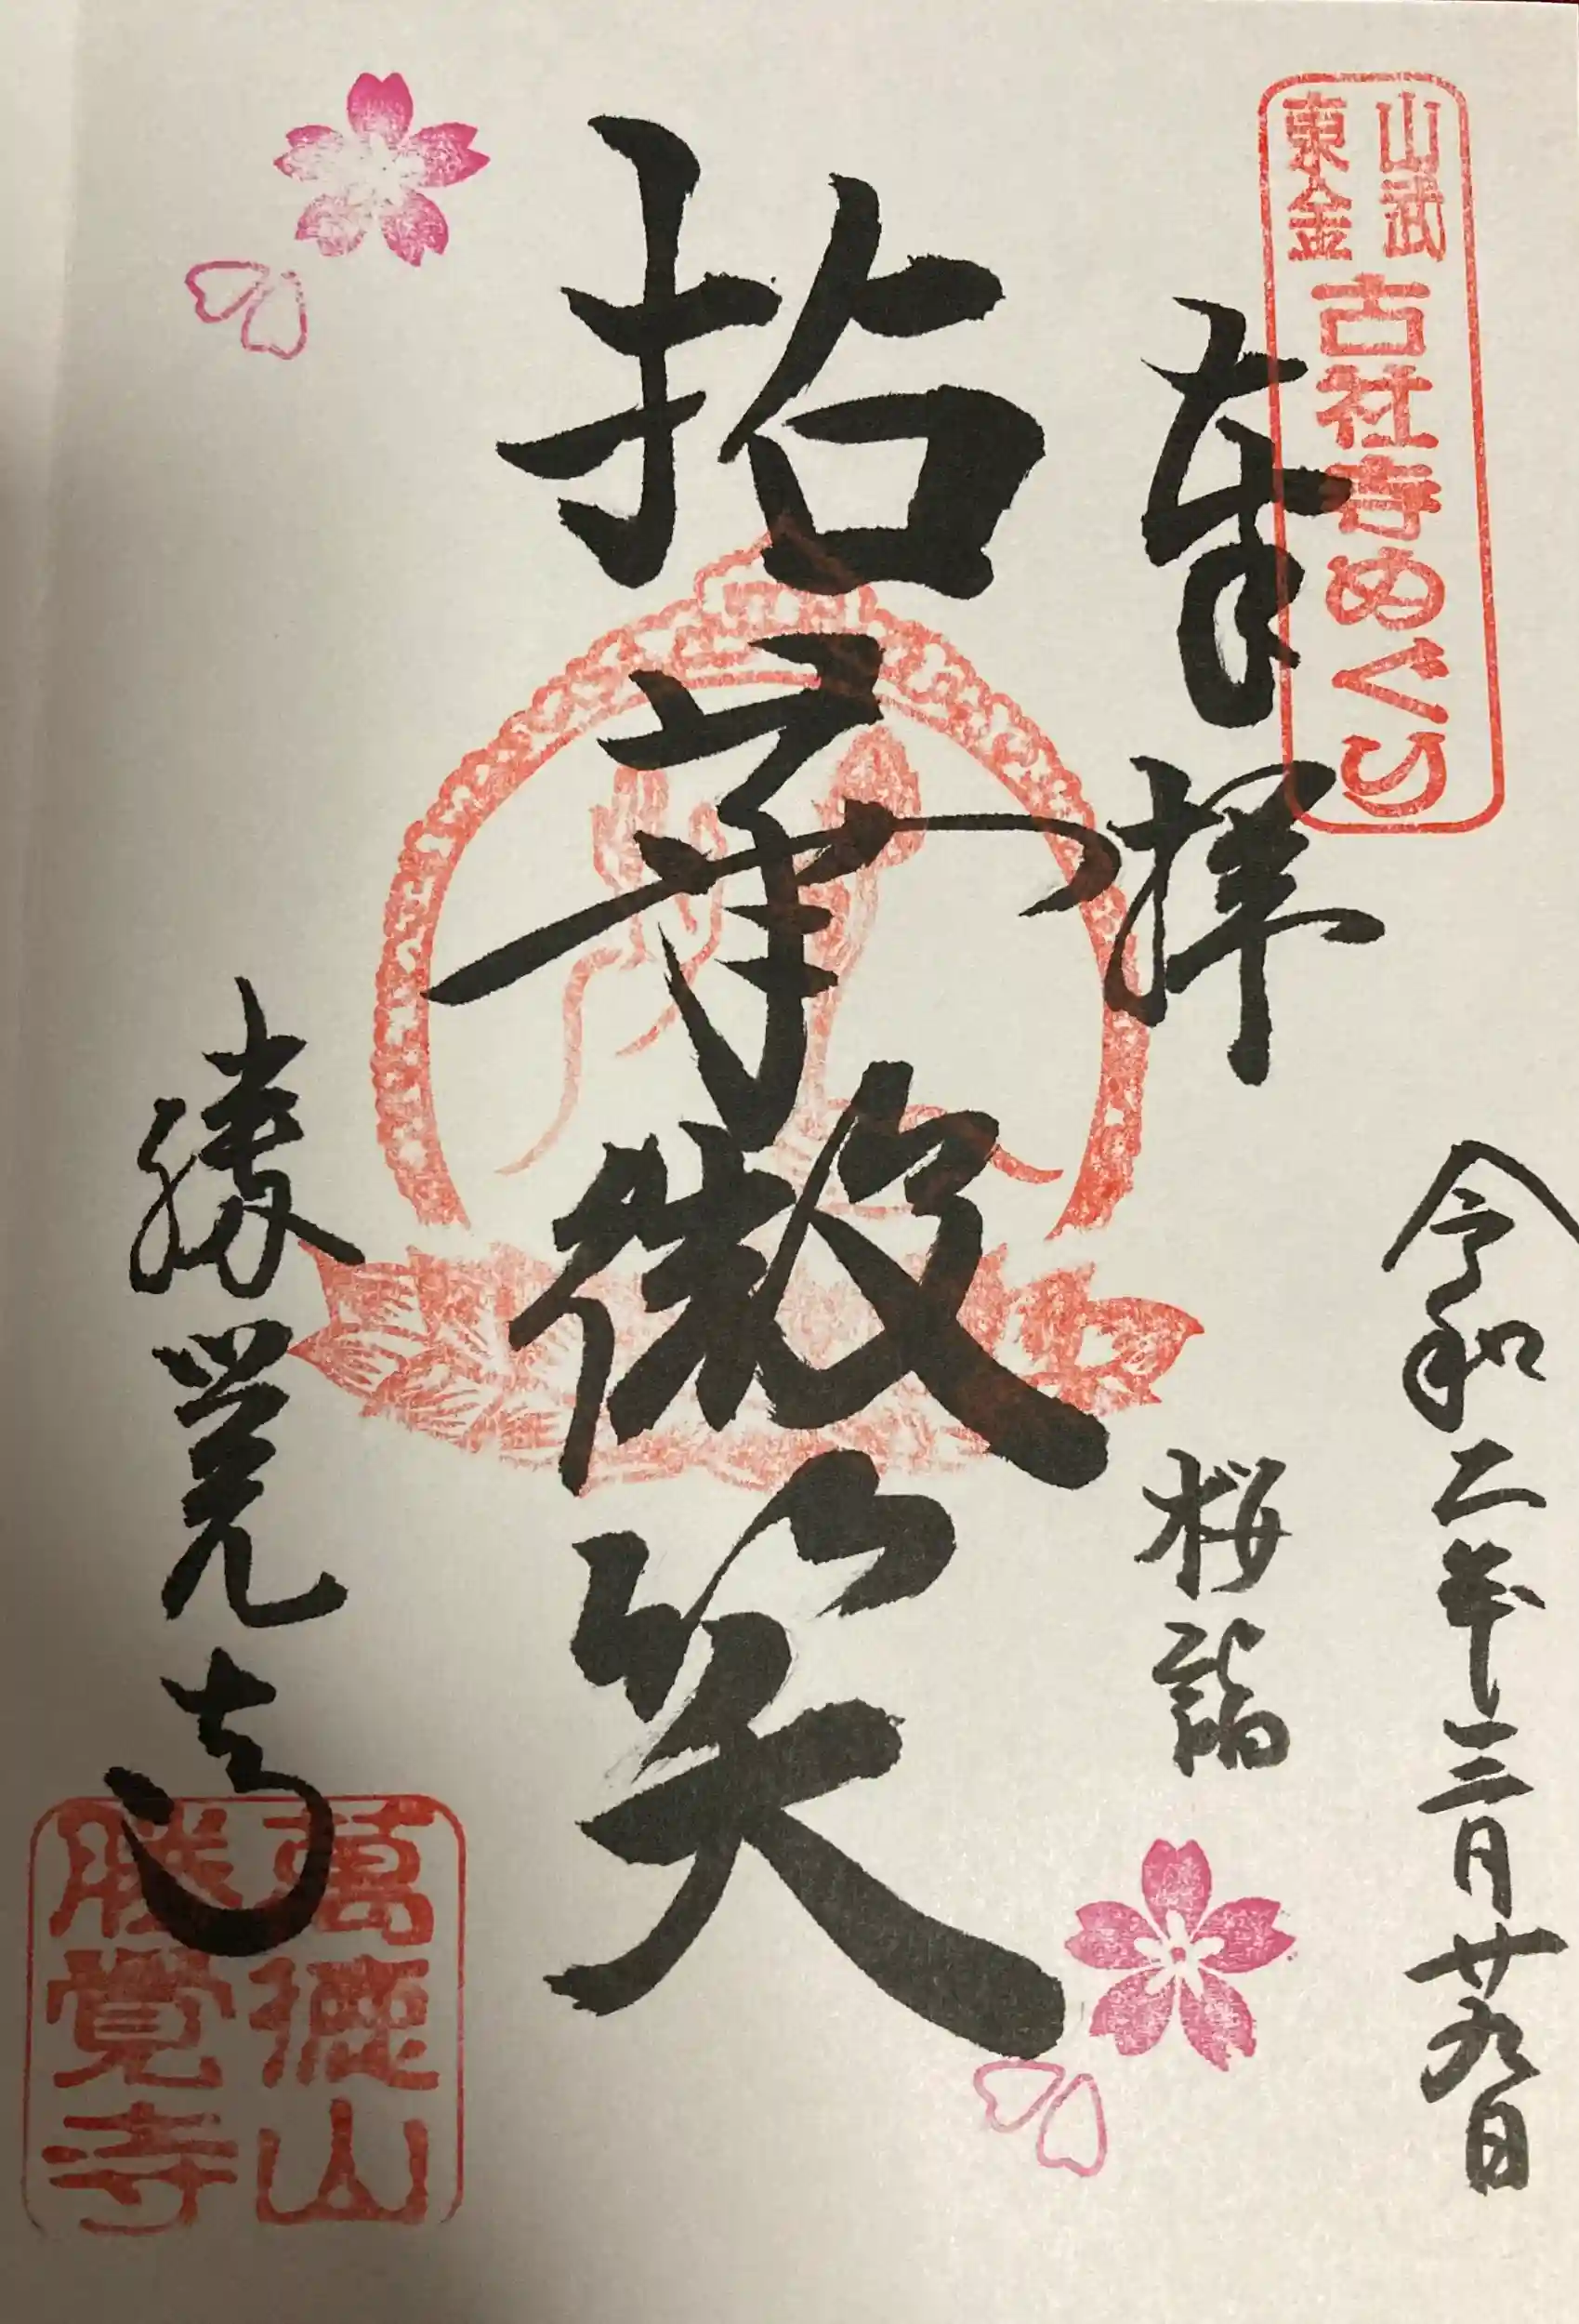 山武
東金
古社寺めぐり
令和二年三月廿九日
奉拝
桜詣
拈華微笑
勝覚寺
萬徳山
勝覺寺